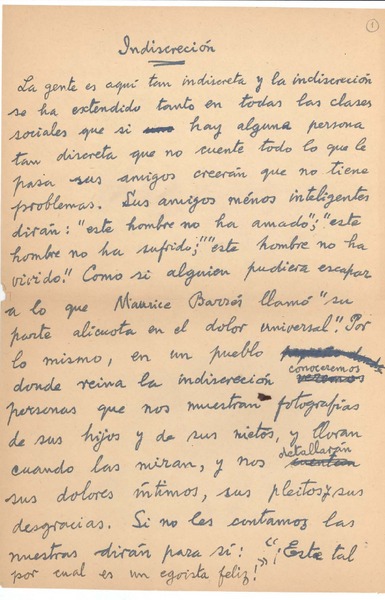 1
Indiscreción
La gente es aquí tan indiscreta y la indiscreción
se ha extendido tanto en todas las clases
sociales que si hay alguna persona
tan discreta que no cuente todo lo que le
pasa sus amigos creerán que no tiene
problemas. Sus amigos ménos inteligentes
dirán: "este hombre no ha amado"; "este
hombre no ha sufrido"; "este hombre no ha
vivido". Como si alguien pudiera escapar
a lo que Maurice Barrés llamó "su
parte alicuota en el dolor universal". Por
lo mismo, en un pueblo
donde reina la indiscreción conoceremos
personas que nos muestran fotografías
de sus hijos y de sus nietos, y lloran
cuando las miran, y nos detallarán
sus dolores íntimos, sus pleitos y sus
desgracias. Si no les contamos las
nuestras dirán para sí: "¡Este tal
por cual es un egoista feliz!"